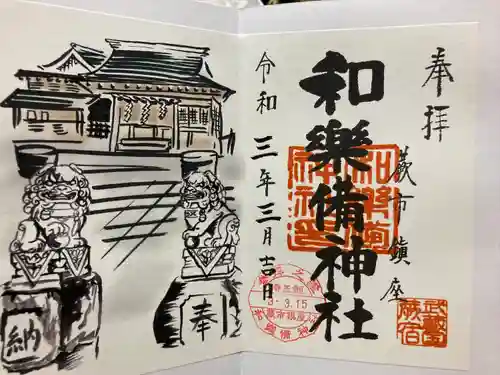 奉拝
蕨市鎮座
和樂備神社
令和三年三月吉日
武蔵
蕨宿
3.3.15
奉
納